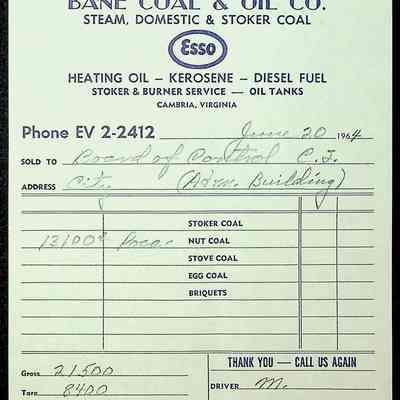 BANE COAL & OIL CO.
STEAM, DOMESTIC & STOKER COAL
Esso
HEATING OIL – KEROSENE – DIESEL FUEL
STOKER & BURNER SERVICE — OIL TANKS
CAMBRIA, VIRGINIA
Phone EV 2-2412 June 20 1964
SOLD TO Board of Control C.I.
ADDRESS City (Adm. Building)
STOKER COAL
13100# Poca. NUT COAL
STOVE COAL
EGG COAL
BRIQUETS
Gross 21500
THANK YOU — CALL US AGAIN
Tare 8400
DRIVER M.